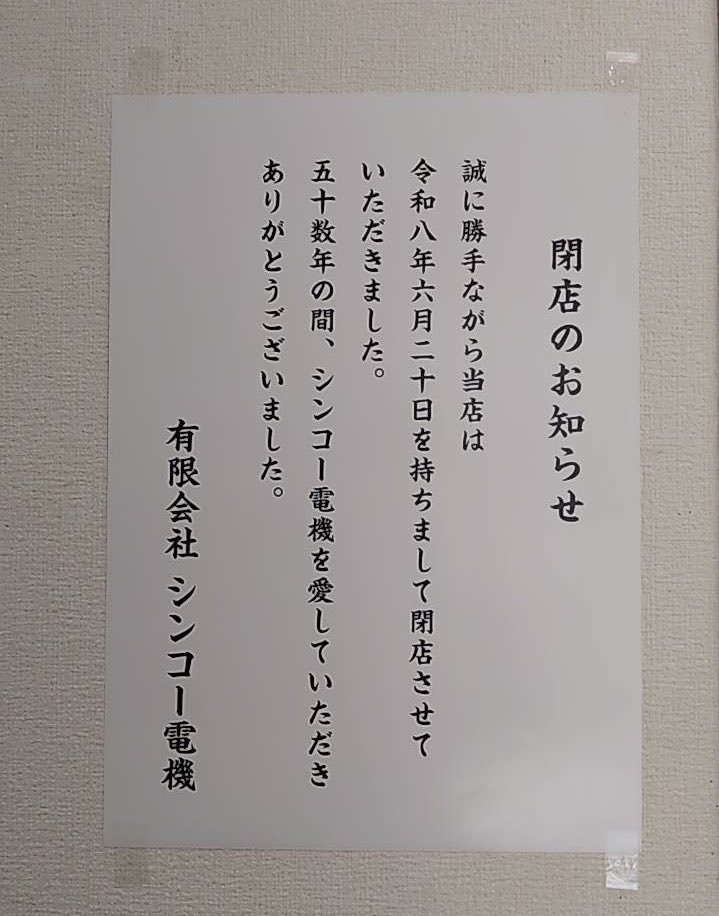 閉店のお知らせ
誠に勝手ながら当店は
令和八年六月二十日を持ちまして閉店させて
いただきました。
五十数年の間、シンコー電機を愛していただき
ありがとうございました。
有限会社 シンコー電機